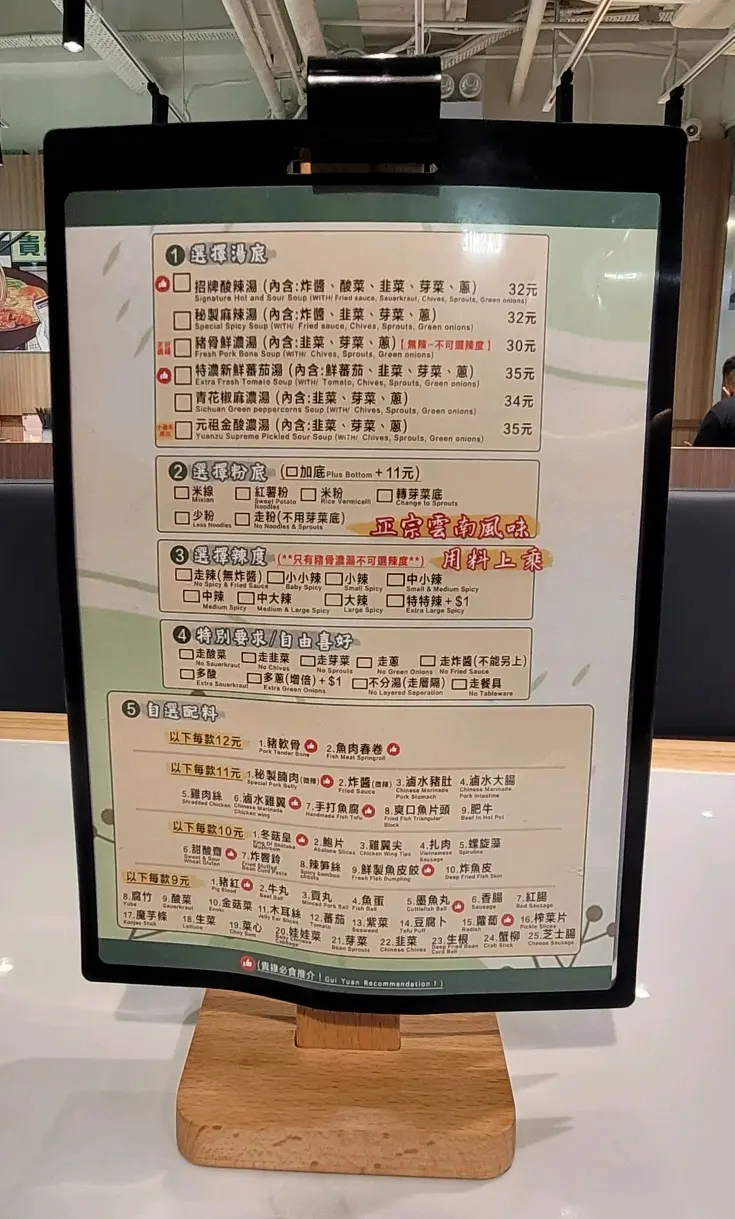 1 選擇湯底
招牌酸辣湯 (內含:炸醬、酸菜、韭菜、芽菜、蔥) 32元
Signature Hot and Sour Soup (WITH/ Fried sauce, Sauerkraut, Chives, Sprouts, Green onions)
秘製麻辣湯 (內含:炸醬、韭菜、芽菜、蔥) 32元
Special Spicy Soup (WITH/ Fried sauce, Chives, Sprouts, Green onions)
豬骨鮮濃湯 (內含:韭菜、芽菜、蔥)【無辣-不可選辣度】 30元
Fresh Pork Bone Soup (WITH/ Chives, Sprouts, Green onions)
特濃新鮮番茄湯 (內含:鮮番茄、韭菜、芽菜、蔥) 35元
Extra Fresh Tomato Soup (WITH/ Tomato, Chives, Sprouts, Green onions)
青花椒麻濃湯 (內含:韭菜、芽菜、蔥) 34元
Sichuan Green peppercorns Soup (WITH/ Chives, Sprouts, Green onions)
元祖金酸濃湯 (內含:韭菜、芽菜、蔥) 35元
Yuanzu Supreme Pickled Sour Soup (WITH/ Chives, Sprouts, Green onions)
2 選擇粉底 (加底Plus Bottom +11元)
米線 紅薯粉 米粉 轉芽菜底
Mixian Sweet Potato Noodles Rice Vermicelli Change to Sprouts
少粉 走粉(不用芽菜底)
Less Noodles No Noodles & Sprouts
正宗雲南風味
用料上乘
3 選擇辣度 (**只有豬骨濃湯不可選辣度**)
走辣(無炸醬) 小小辣 小辣 中小辣
No Spicy & Fried Sauce Baby Spicy Small Spicy Small & Medium Spicy
中辣 中大辣 大辣 特特辣+$1
Medium Spicy Medium & Large Spicy Large Spicy Extra Large Spicy
4 特別要求/自由喜好
走酸菜 走韭菜 走芽菜 走蔥 走炸醬(不能另上)
No Sauerkraut No Chives No Sprouts No Green Onions No Fried Sauce
多酸 多蔥(增倍)+$1 不分湯(走層隔) 走餐具
Extra Sauerkraut Extra Green Onions No Layered Seperation No Tableware
5 自選配料
以下每款12元 1.豬軟骨 2.魚肉春卷
Pork Tender Bone Fish Meat Springroll
以下每款11元 1.秘製腩肉(微辣) 2.炸醬(微辣) 3.滷水豬肚 4.滷水大腸
Special Pork Belly Fried Sauce Chinese Marinade Pork Stomach Chinese Marinade Pork Intestine
5.雞肉絲 6.滷水雞翼 7.手打魚腐 8.爽口魚片頭 9.肥牛
Shredded Chicken Chinese Marinade Chicken wing Handmade Fish Tofu Fried Fish Triangular Block Beef In Hot Pot
以下每款10元 1.冬菇皇 2.鮑片 3.雞翼尖 4.扎肉 5.螺旋藻
King Of Shiitake Mushroom Abalone Slices Chicken Wing Tips Vietnamese Sausage Spirulina
6.甜酸齋 7.炸響鈴 8.辣筍絲 9.鮮製魚皮餃 10.炸魚皮
Sweet & Sour Wheat Gluten Fried Stuffed Bean Curd Paste Spicy bamboo shoots Fresh Fish Dumpling Deep Fried Fish Skin
以下每款9元 1.豬紅 2.牛丸 3.貢丸 4.魚蛋 5.墨魚丸 6.香腸 7.紅腸
Pig Blood Beef Ball Minced Pork Ball Fish Ball Cuttlefish Ball Sausage Red Sausage
8.腐竹 9.酸菜 10.金菇菜 11.木耳絲 12.番茄 13.紫菜 14.豆腐卜 15.蘿蔔 16.榨菜片
Yuba Sauerkraut Enoki Jelly Ear Slices Tomato Seaweed Tofu Puff Radish Pickle Slices
17.魔芋條 18.生菜 19.菜心 20.娃娃菜 21.芽菜 22.韭菜 23.生根 24.蟹柳 25.芝士腸
Konjac Stick Lettuce Choy Sum Baby Chinese Cabbage Bean Sprouts Chinese Chives Deep Fried Bean Curd Ball Crab Stick Cheese Sausage
(貴緣必食推介！Gui Yuan Recommendation！)